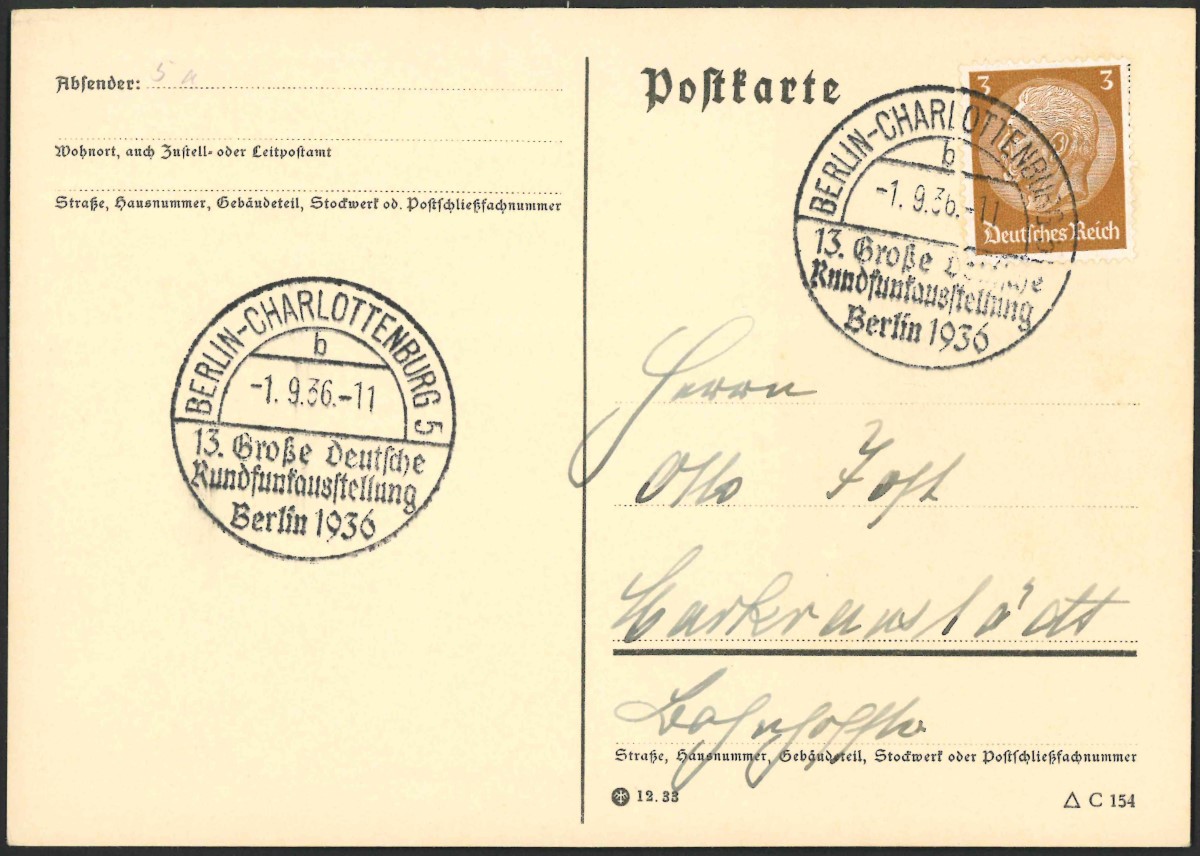 Absender: 5 a
Wohnort, auch Zustell- oder Leitpostamt
Straße, Hausnummer, Gebäudeteil, Stockwerk od. Postschließfachnummer
BERLIN-CHARLOTTENBURG 5
b
-1. 9.36.-11
13. Große Deutsche
Rundfunkausstellung
Berlin 1936
Postkarte
3 3
Deutsches Reich
BERLIN-CHARLOTTENBURG 5
b
-1. 9.36.-11
13. Große Deutsche
Rundfunkausstellung
Berlin 1936
Herrn
Otto Jost
Markranstädt
Straße, Hausnummer, Gebäudeteil, Stockwerk oder Postschließfachnummer
12.33
C 154